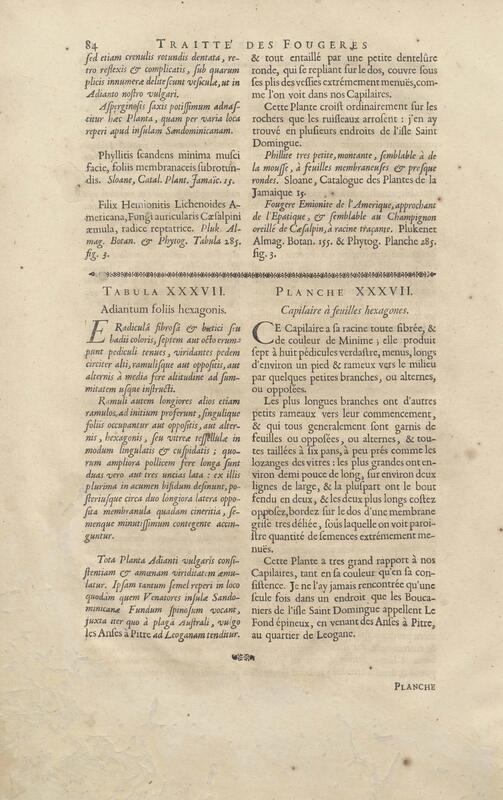 84 TRAITTE' DES FOUGERES
sed etiam crenulis rotundis dentata, re-
tro reflexis & complicatis, sub quarum
plicis innumeræ delitescunt vesiculæ, ut in
Adianto nostro vulgari.
Asperginosis saxis potissimum adnas-
citur hæc Planta, quam per varia loca
reperi apud insulam Sandominicanam.
Phyllitis scandens minima musci
facie, foliis membranaceis subrotun-
dis. Sloane, Catal. Plant. Jamaic. 15.
Filix Hemionitis Lichenoides A-
mericana, Fungi auricularis Cæsalpini
æmula, radice reptatrice. Pluk. Al-
mag. Botan. & Phytog. Tabula 285.
fig. 3.
& tout entaillé par une petite dentelûre
ronde, qui se repliant sur le dos, couvre sous
ses plis des vessies extrémement menuës, com-
me l'on voit dans nos Capilaires.
Cette Plante croist ordinairement sur les
rochers que les ruisseaux arrosent : j'en ay
trouvé en plusieurs endroits de l'isle Saint
Domingue.
Phillite tres petite, montante, semblable à de
la mousse, à feuilles membraneuses & presque
rondes. Sloane, Catalogue des Plantes de la
Jamaique 15.
Fougere Emionite de l'Amerique, approchant
de l'Epatique, & semblable au Champignon
oreillé de Cæsalpin, à racine traçante. Plukenet
Almag. Botan. 155. & Phytog. Planche 285.
fig. 3.
TABULA XXXVII.
Adiantum foliis hexagonis.
E Radiculâ fibrosâ & bætici seu
badii coloris, septem aut octo erum-
punt pediculi tenues, viridantes pedem
circiter alti, ramulisque aut oppositi, aut
alternis à media fere altitudine ad sum-
mitatem usque instructi.
Ramuli autem longiores alios etiam
ramulos, ad initium proferunt, singulique
foliis occupantur aut oppositis, aut alter-
nis, hexagonis, seu vitreæ tessellulæ in
modum lingulatis & cuspidatis ; quo-
rum ampliora pollicem fere longa sunt
duas vero aut tres uncias lata : ex illis
plurima in acumen bifidum desinunt, po-
steriusque circa duo longiora latera oppo-
sita membranula quadam cineritia, se-
menque minutissimum contegente accin-
guntur.
Tota Planta Adianti vulgaris consi-
stentiam & amœnam viriditatem æmu-
latur. Ipsam tantum semel reperi in loco
quodam quem Venatores insulæ Sando-
minicanæ Fundum spinosum vocant,
juxta iter quo à plagâ Australi, vulgo
les Anses à Pitre ad Leoganam tenditur.
PLANCHE XXXVII.
Capilaire à feuilles hexagones.
CE Capilaire a sa racine toute fibrée, &
de couleur de Minime ; elle produit
sept à huit pédicules verdastre, menus, longs
d'environ un pied & rameux vers le milieu
par quelques petites branches, ou alternes,
ou opposées.
Les plus longues branches ont d'autres
petits rameaux vers leur commencement,
& qui tous generalement sont garnis de
feuilles ou opposées, ou alternes, & tou-
tes taillées à six pans, à peu prés comme les
lozanges des vitres : les plus grandes ont en-
viron demi pouce de long, sur environ deux
lignes de large, & la pluspart ont le bout
fendu en deux, & les deux plus longs costez
opposez, bordez sur le dos d'une membrane
grise tres déliée, sous laquelle on voit paroi-
stre quantité de semences extrémement me-
nuës.
Cette Plante a tres grand rapport à nos
Capilaires, tant en sa couleur qu'en sa con-
sistence. Je ne l'ay jamais rencontrée qu'une
seule fois dans un endroit que les Bouca-
niers de l'isle Saint Domingue appellent Le
Fond épineux, en venant des Anses à Pitre,
au quartier de Leogane.
PLANCHE